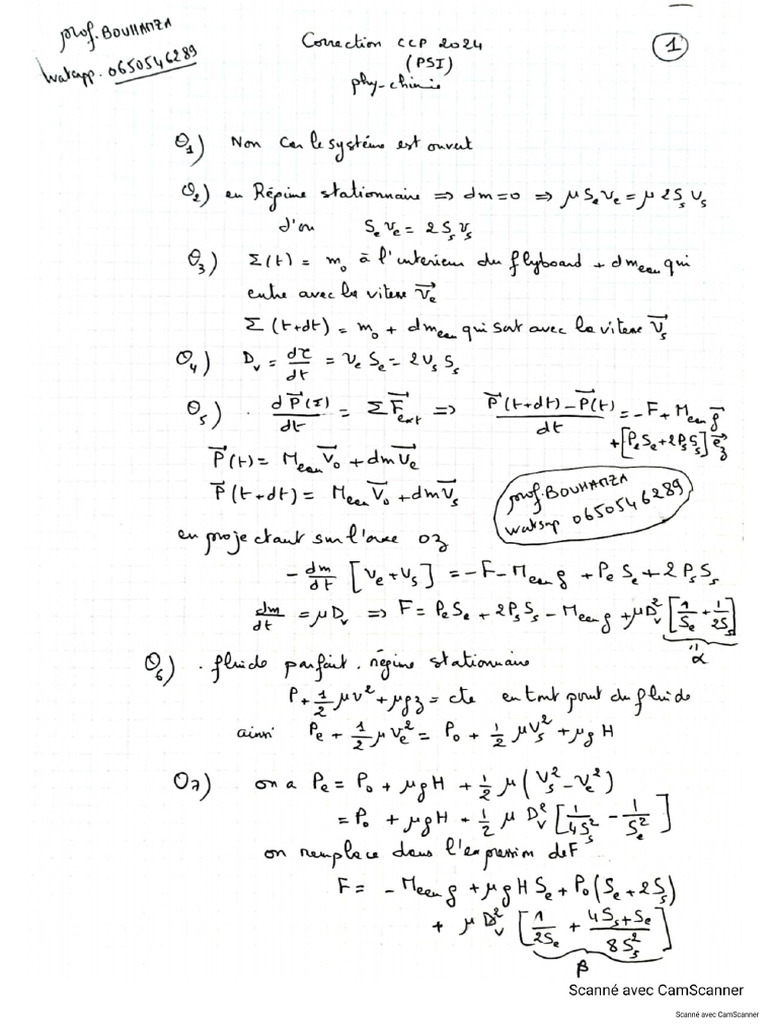 prof. BOUHAMZA
Watsapp. 0650546289
Correction CCP 2024
(PSI)
phy-chimie
1
Q1) Non Car le système est ouvert
Q2) en Régime stationnaire ⇒ dm=0 ⇒ μ Se ve = μ 2 Ss vs
d'où Se ve = 2 Ss vs
Q3) Σ(t) = m0 à l'interieur du flyboard + dm eau qui
entre avec la vitesse v⃗e
Σ(t+dt) = m0 + dm eau qui sort avec la vitesse v⃗s
Q4) Dv = dτ/dt = ve Se = 2 vs Ss
Q5) . dP⃗(Σ)/dt = Σ F⃗ext ⇒ (P⃗(t+dt) − P⃗(t))/dt = −F + Meau g⃗
+ [Pe Se + 2 Ps Ss] e⃗z
P⃗(t) = Meau V⃗0 + dm v⃗e
P⃗(t+dt) = Meau V⃗0 + dm v⃗s
prof. BOUHAMZA
watsap 0650546289
en projectant sur l'axe oz
− dm/dt [Ve + Vs] = −F − Meau g + Pe Se + 2 Ps Ss
dm/dt = μ Dv ⇒ F = Pe Se + 2 Ps Ss − Meau g + μ Dv² [1/Se + 1/2Ss]
α
Q6) . fluide parfait. régime stationnaire
P + 1/2 μ v² + μ g z = cte en tout point du fluide
ainsi Pe + 1/2 μ Ve² = P0 + 1/2 μ Vs² + μ g H
Q7) on a Pe = P0 + μ g H + 1/2 μ (Vs² − Ve²)
= P0 + μ g H + 1/2 μ Dv² [1/4Ss² − 1/Se²]
on remplace dans l'expression de F
F = − Meau g + μ g H Se + P0 (Se + 2 Ss)
+ μ Dv² [1/2Se + (4Ss + Se)/8Ss²]
β
Scanné avec CamScanner
Scanné avec CamScanner